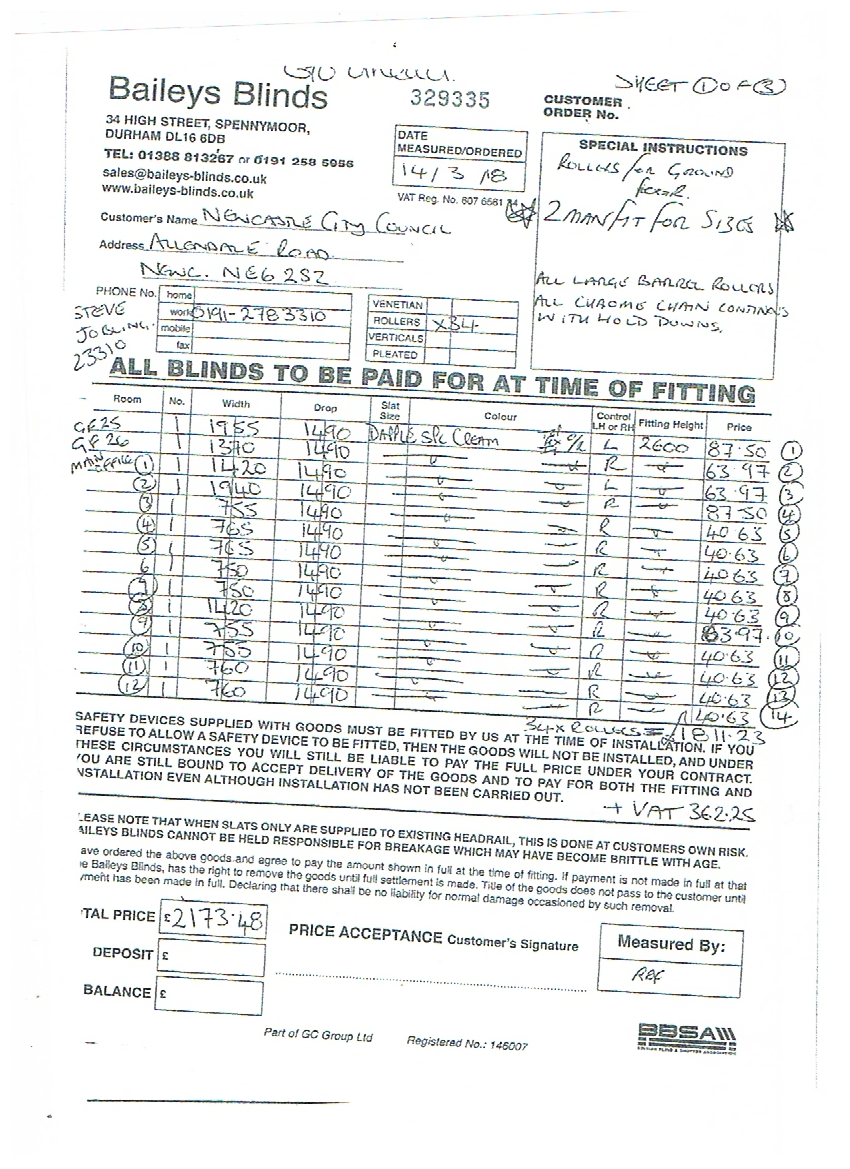 SHEET ① OF ③
Baileys Blinds
329335
CUSTOMER
ORDER No.
34 HIGH STREET, SPENNYMOOR,
DURHAM DL16 6DB
TEL: 01388 813267 or 0191 258 5956
sales@baileys-blinds.co.uk
www.baileys-blinds.co.uk
DATE
MEASURED/ORDERED
14/3/18
VAT Reg. No. 607 6561
SPECIAL INSTRUCTIONS
ROLLERS FOR GROUND
FLOOR.
2 MAN FIT FOR SIZES
ALL LARGE BARREL ROLLERS
ALL CHROME CHAIN CONTROLS
WITH HOLD DOWNS.
Customer's Name NEWCASTLE CITY COUNCIL
Address ALLENDALE ROAD.
NEWC. NE6 2SZ
PHONE No. home
work 0191-2783310
mobile
fax
STEVE
JOBLING.
23310
VENETIAN
ROLLERS X34
VERTICALS
PLEATED
ALL BLINDS TO BE PAID FOR AT TIME OF FITTING
Room No. Width Drop Slat Size Colour Control LH or RH Fitting Height Price
GF25 1 1955 1490 DAPPLE SPC CREAM O/R L 2600 87.50 ①
GF26 1 1370 1490 R 63.97 ②
MAIN OFFICE ① 1 1420 1490 L 63.97 ③
② 1 1940 1490 R 87.50 ④
③ 1 755 1490 R 40.63 ⑤
④ 1 765 1490 R 40.63 ⑥
⑤ 1 765 1490 R 40.63 ⑦
6 1 750 1490 R 40.63 ⑧
⑦ 1 750 1490 R 40.63 ⑨
⑧ 1 1420 1490 R 63.97 ⑩
⑨ 1 755 1490 R 40.63 ⑪
⑩ 1 755 1490 R 40.63 ⑫
⑪ 1 760 1490 R 40.63 ⑬
⑫ 1 760 1490 R 40.63 ⑭
34 x ROLLERS = 1811.23
SAFETY DEVICES SUPPLIED WITH GOODS MUST BE FITTED BY US AT THE TIME OF INSTALLATION. IF YOU
REFUSE TO ALLOW A SAFETY DEVICE TO BE FITTED, THEN THE GOODS WILL NOT BE INSTALLED, AND UNDER
THESE CIRCUMSTANCES YOU WILL STILL BE LIABLE TO PAY THE FULL PRICE UNDER YOUR CONTRACT.
YOU ARE STILL BOUND TO ACCEPT DELIVERY OF THE GOODS AND TO PAY FOR BOTH THE FITTING AND
NSTALLATION EVEN ALTHOUGH INSTALLATION HAS NOT BEEN CARRIED OUT.
+ VAT 362.25
LEASE NOTE THAT WHEN SLATS ONLY ARE SUPPLIED TO EXISTING HEADRAIL, THIS IS DONE AT CUSTOMERS OWN RISK.
AILEYS BLINDS CANNOT BE HELD RESPONSIBLE FOR BREAKAGE WHICH MAY HAVE BECOME BRITTLE WITH AGE.
ave ordered the above goods and agree to pay the amount shown in full at the time of fitting. If payment is not made in full at that
e Baileys Blinds, has the right to remove the goods until full settlement is made. Title of the goods does not pass to the customer until
yment has been made in full. Declaring that there shall be no liability for normal damage occasioned by such removal.
TAL PRICE £2173.48
DEPOSIT £
BALANCE £
PRICE ACCEPTANCE Customer's Signature
Measured By:
Part of GC Group Ltd
Registered No.: 146007
BBSA
BRITISH BLIND & SHUTTER ASSOCIATION